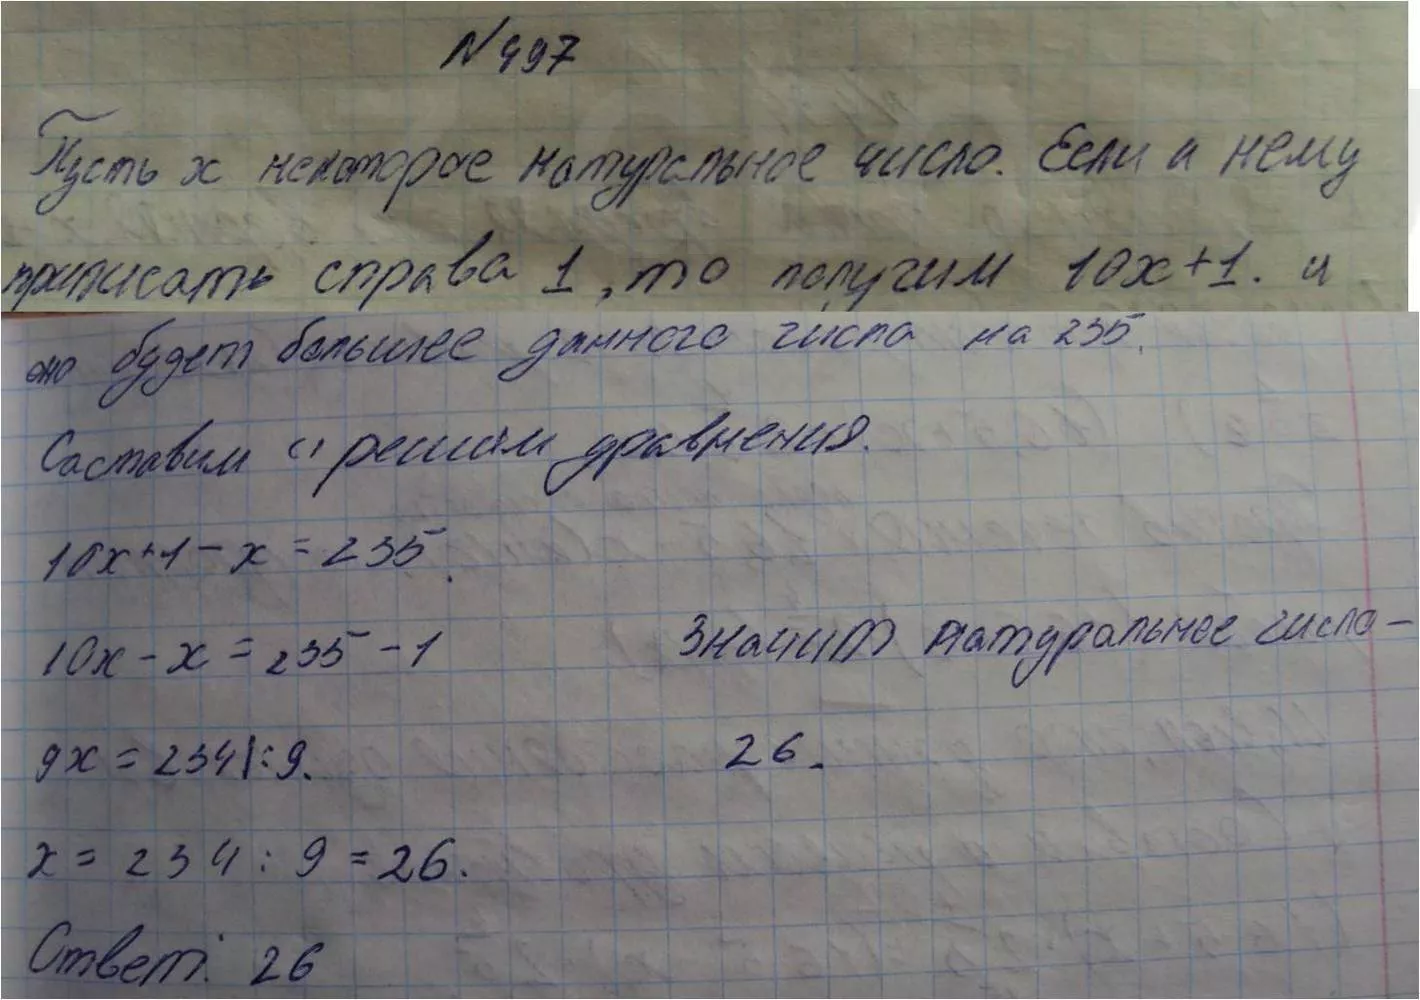 N 497
Пусть x некоторое натуральное число. Если к нему
приписать справа 1, то получим 10x+1. и
оно будет большее данного числа на 235.
Составим и решим уравнения.
10x+1-x=235.
10x-x=235-1
Значит натуральное число-
9x=234|:9.
26.
x=234:9=26.
Ответ: 26